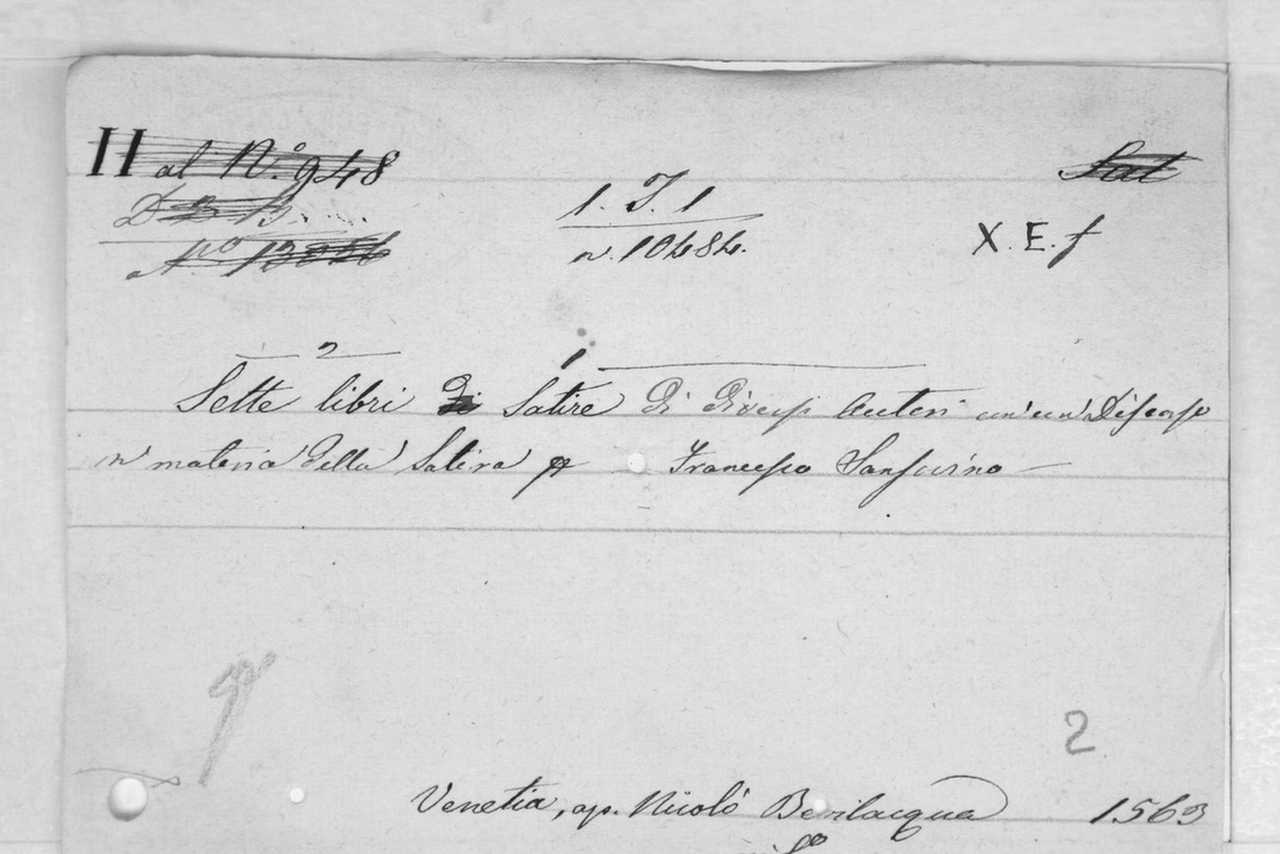 II al N.º 948 Sat
1. J. 1
X. E. f
Nº
n. 10484.
2 1
Sette libri di Satire di diversi Autori con un Discorso
in materia della Satira Francesco Sansovino
2
Venetia, ap. Nicolò Bevilacqua 1563